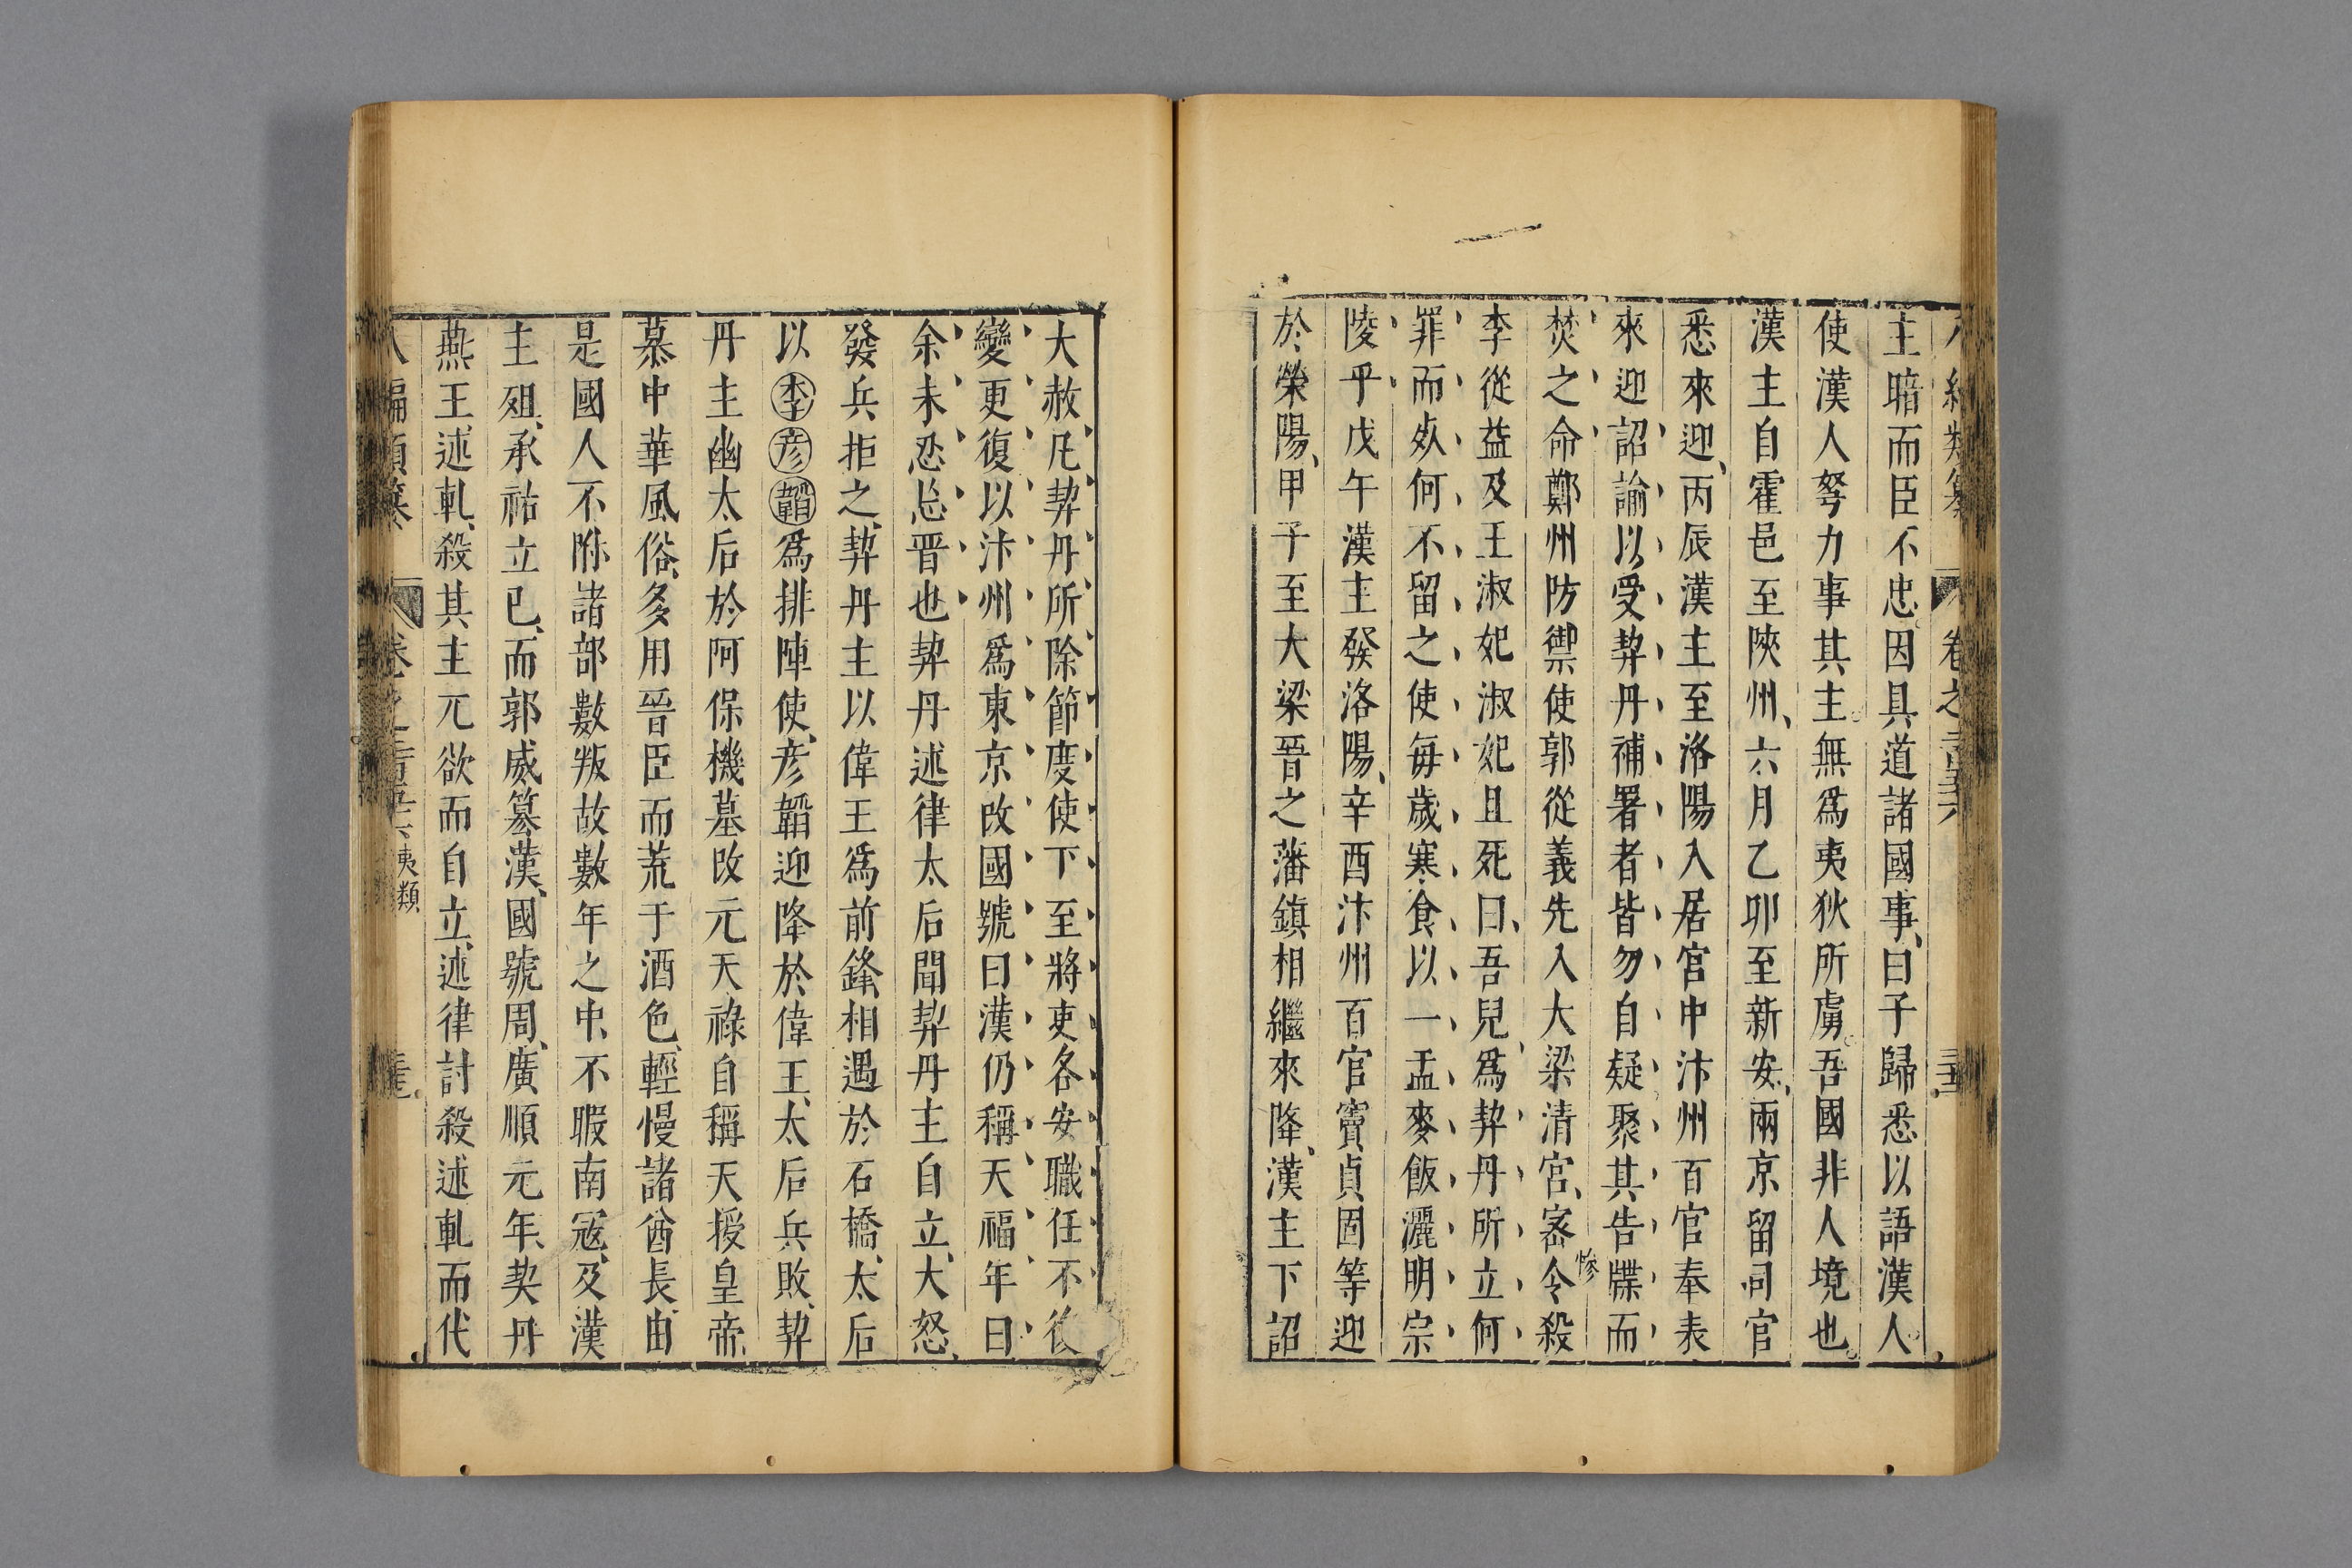 主暗而臣不忠因具道諸國事曰子歸悉以語漢人
使漢人努力事其主無爲夷狄所虜吾國非人境也
漢主自霍邑至陝州六月乙卯至新安兩京留司官
悉來迎丙辰漢主至洛陽入居宮中汴州百官奉表
來迎詔諭以受契丹補署者皆勿自疑聚其告牒而
焚之命鄭州防禦使郭從義先入大梁清宮宻令殺
慘
李從益及王淑妃淑妃且死曰吾兒爲契丹所立何
罪而死何不留之使每歲寒食以一盂麥飯灑明宗
陵乎戊午漢主發洛陽辛酉汴州百官竇貞固等迎
於榮陽甲子至大梁晉之藩鎮相繼來降漢主下詔
大赦凡契丹所除節度使下至將吏各安職任不復
變更復以汴州爲東京改國號曰漢仍稱天福年曰
余未忍忘晉也契丹述律太后聞契丹主自立大怒
發兵拒之契丹主以偉王爲前鋒相遇於石橋太后
以李彦韜爲排陣使彦韜迎降於偉王太后兵敗契
丹主幽太后於阿保機墓改元天祿自稱天授皇帝
慕中華風俗多用晉臣而荒于酒色輕慢諸酋長由
是國人不附諸部數叛故數年之中不暇南冦及漢
主殂承祐立已而郭威篡漢國號周廣順元年契丹
燕王述軋殺其主兀欲而自立述律討殺述軋而代
夷類